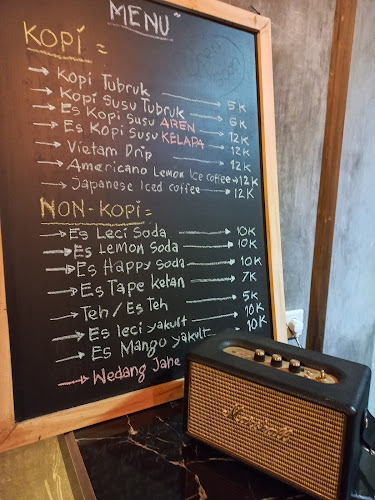 MENU
KOPI =
→ Kopi Tubruk → 5K
→ Kopi Susu Tubruk → 6K
→ Es Kopi Susu AREN → 12K
→ Es Kopi Susu KELAPA → 12K
→ Vietam Drip → 12K
→ Americano Lemon Ice coffee → 12K
→ Japanese Iced coffee → 12K
NON-KOPI =
→ Es Leci Soda → 10K
→ Es Lemon Soda → 10K
→ Es Happy Soda → 10K
→ Es Tape ketan → 7K
→ Teh / Es Teh → 5K
→ Es leci yakult → 10K
→ Es Mango yakult → 10K
→ Wedang Jahe
Marshall